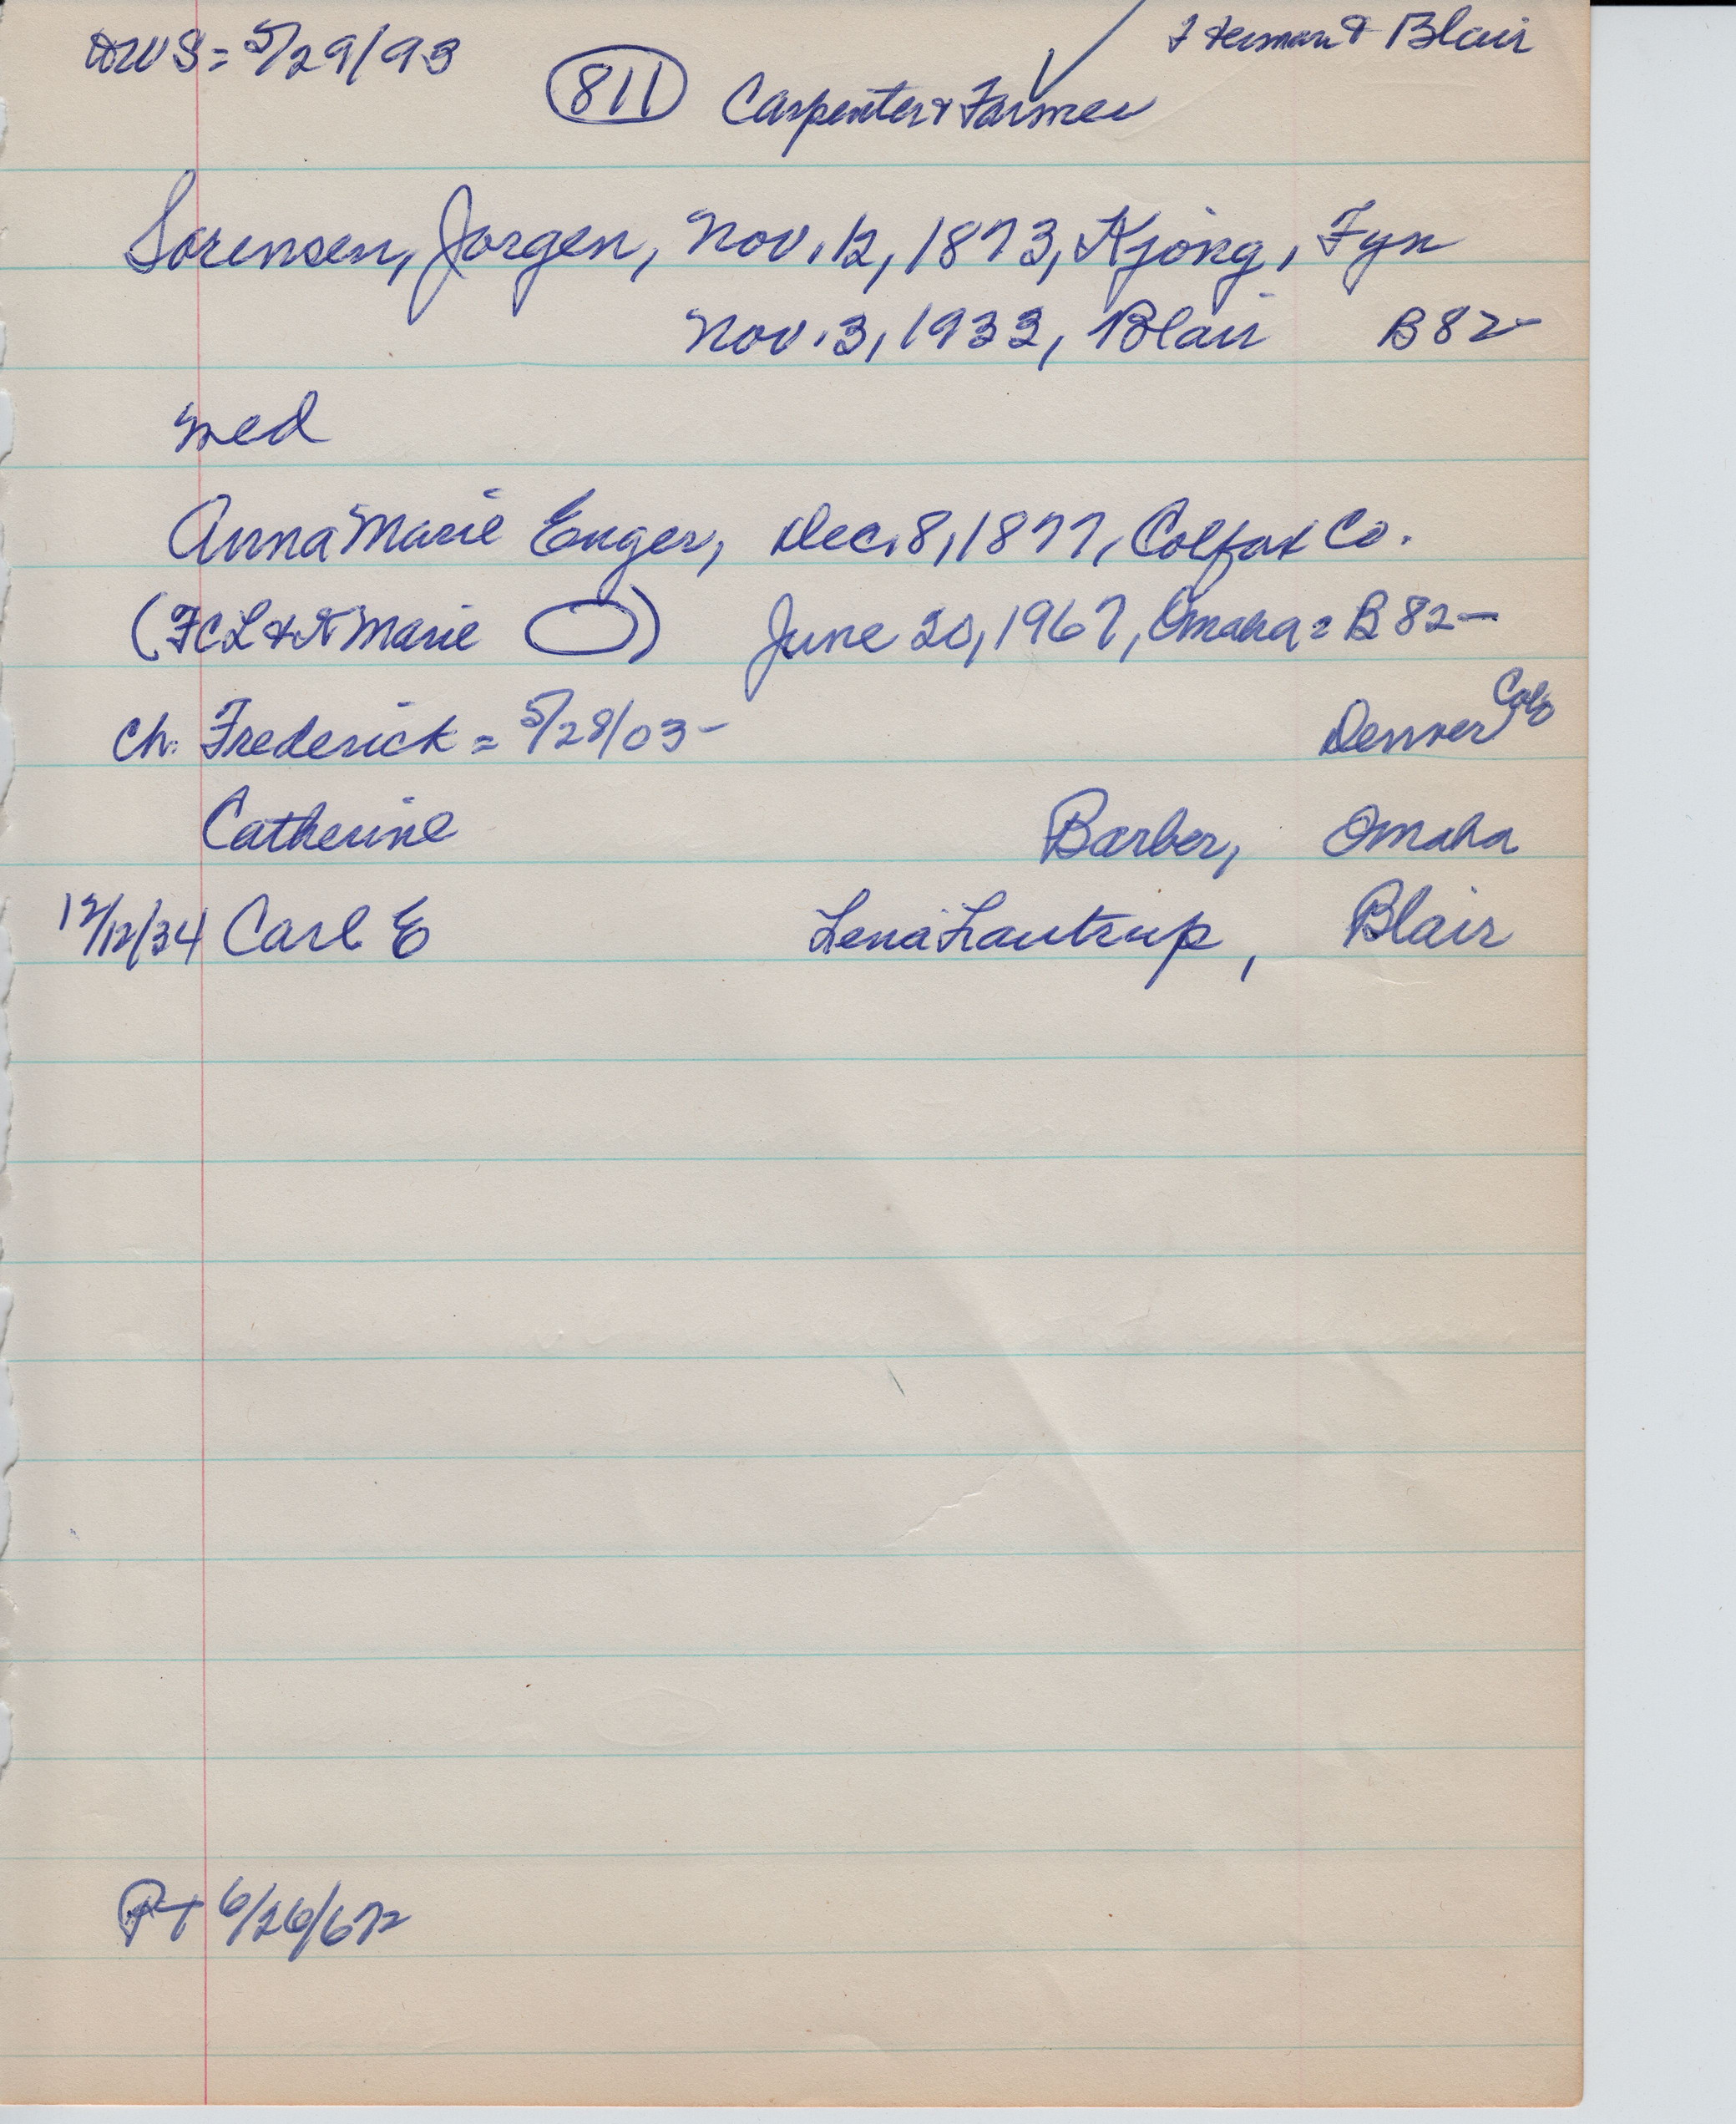 = 5/29/93 Herman & Blair
811 Carpenter & Farmer
Sorensen, Jorgen, Nov. 12, 1873, Kjong, Fyn
Nov. 3, 1933, Blair B82-
med
Anna Marie Enger, Dec. 8, 1877, Colfax Co.
(FCL & K Marie ) June 20, 1967, Omaha = B 82-
ch. Frederick = 5/28/03- Denver Colo
Catherine Barber, Omaha
12/12/34 Carl E Lena Lautrup, Blair
PT 6/26/67